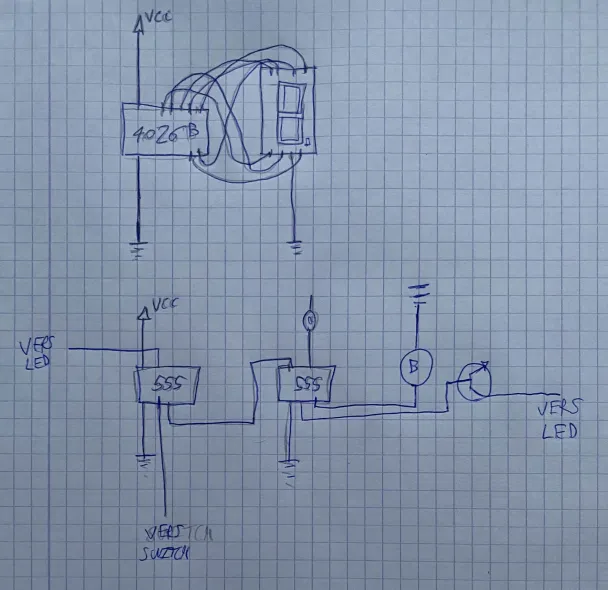 VCC
4026B
VCC
VERS
LED
555
555
B
VERS
LED
SWITCH